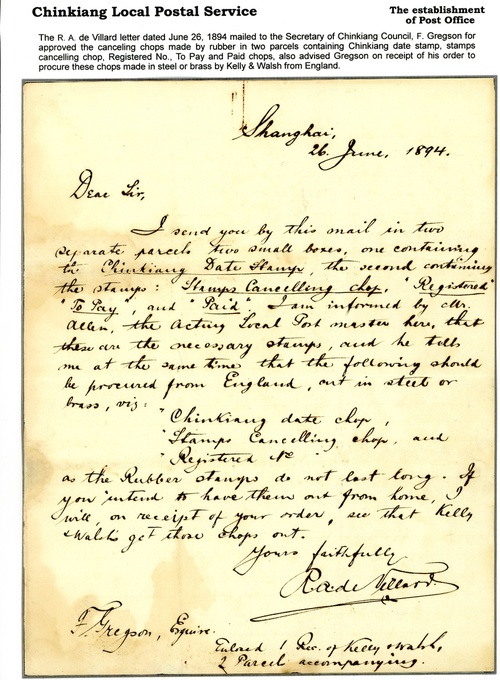 Chinkiang Local Postal Service
The establishment
of Post Office
The R. A. de Villard letter dated June 26, 1894 mailed to the Secretary of Chinkiang Council, F. Gregson for
approved the canceling chops made by rubber in two parts containing Chinkiang date stamp, stamps
cancelling chop, Registered No., To Pay and Paid chops, also advised Gregson on receipt of his order to
procure these chops made in steel or brass by Kelly & Walsh from England.
Shanghai,
26. June, 1894.
Dear Sir,
I send you by this mail in two
separate parcels two small boxes, one containing
th Chinkiang Date Stamp, the second containing
the stamps: Stamps Cancelling chop, "Registered"
"To Pay", and "Paid". I am informed by Mr.
Allen, the Acting Local Post master here, that
these are the necessary stamps, and he tells
me at the same time that the following should
be procured from England, cut in steel or
brass, viz:
"Chinkiang date chop,
"Stamps Cancelling chop, and
"Registered No"
as the Rubber stamps do not last long. If
you intend to have them out from home, I
will, on receipt of your order, see that Kelly
& Walsh get those chops out.
Yours faithfully
R. A. de Villard.
F. Gregson, Esquire.
1 Rec. of Kelly & Walsh,
2 Parcel accompanying.